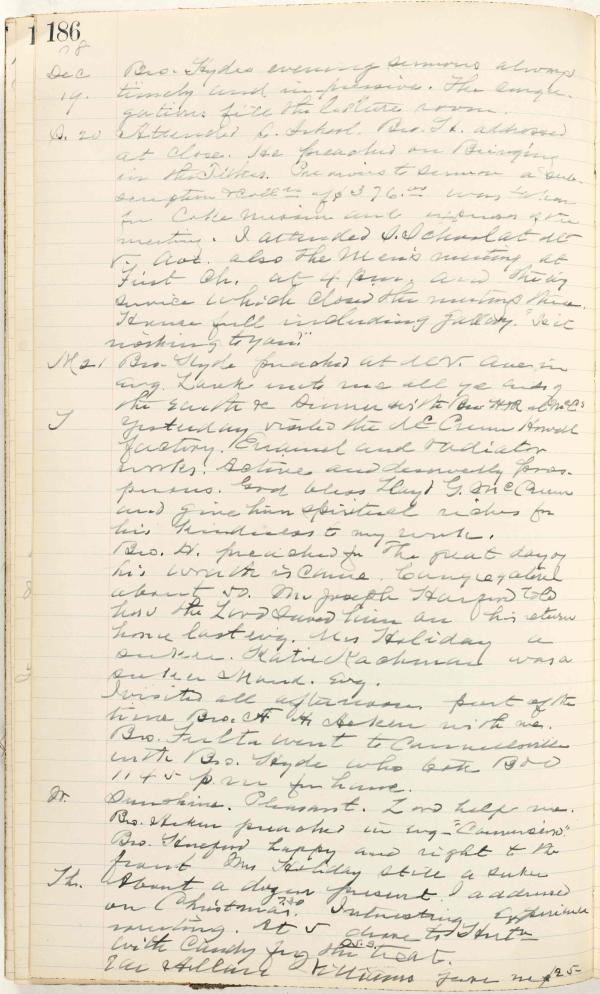 186
Dec Bro. Hydes evening sermons always
19. timely and impressive. The congre-
gations fill the lecture room.
S. 20 Attended S. School. Bro. H. addressed
at close. He preached on Bringing
in the Tithes. Previous to sermon a sub-
scription & coll of $376. was taken
for Coke Mission and expenses of the
meeting. I attended S. School at
Ave. also the Men's meeting at
First Ch. at 4 p.m. and the
service which closed the meetings there.
House full including gallery. "Is it
working to you?"
M 21 Bro. Hyde preached at Ave. in
evg. Look unto me all ye ends of
the earth &c Dinner with the Bro
T Yesterday visited the McCrum Howell
factory. Enamel and radiator
works. Active and deservedly pros-
perous. God bless Lloyd G. McCrum
and give him spiritual riches for
his kindness to my work.
Bro. H. preached for the great day of
his wrath is come. Congregation
about 50. Mr Joseph Hanford told
how the Lord saved him on his return
home last evg. Mrs Holiday a
seeker. Katie Kachman was a
seeker Mond. evg.
I visited all afternoon part of the
time Bro. Aiken with me.
Bro. Fulta went to Connellsville
with Bro. Hyde who took B & O
1145 p.m for home.
W. Sunshine. Pleasant. Lord help me.
Bro. Aiken preached in evg "Conversion"
Bro. Hanford happy and right to the
front Mrs Holiday still a seeker
Th. About a dozen present. I addressed
on Christmas. 7.30 Interesting experience
meeting. At 5 drove to
with Candy for the S.S. treat.
Williams gave me $25